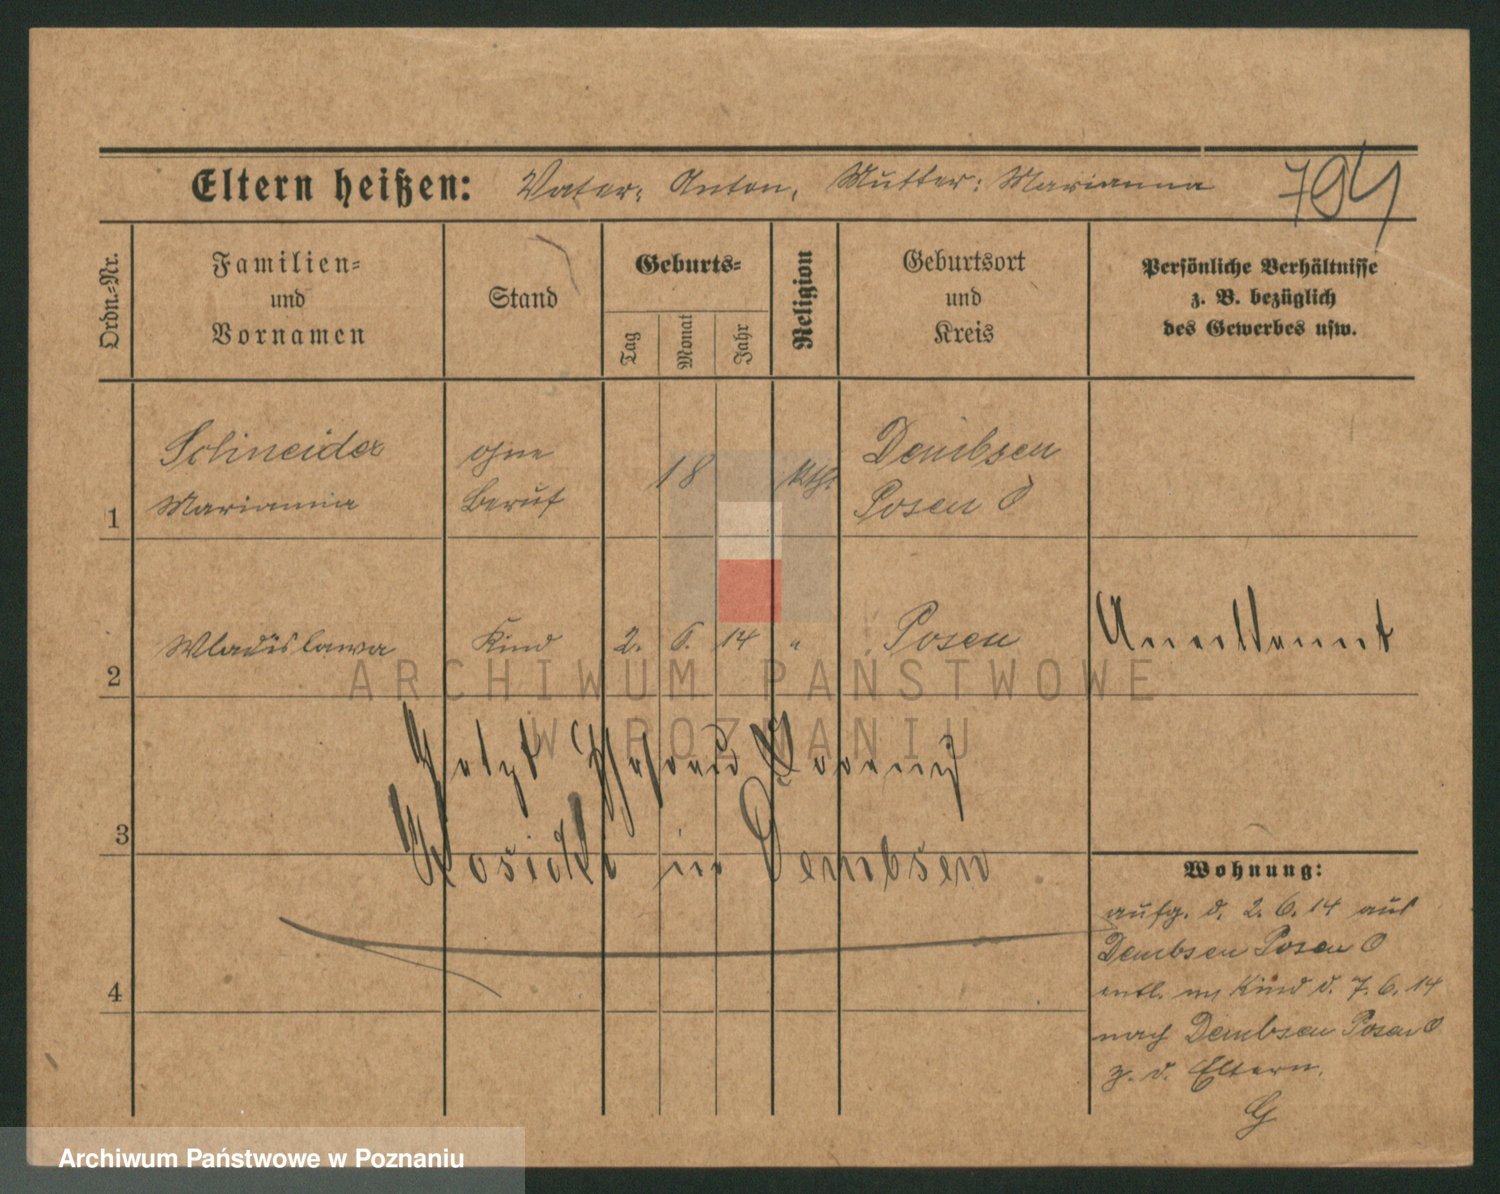 Eltern heißen: Vater: Anton, Mutter: Marianna 794
Ordn.-Nr.
Familien-
und
Vornamen
Stand
Geburts-
Tag
Monat
Jahr
Religion
Geburtsort
und
Kreis
Persönliche Verhältnisse
z. B. bezüglich
des Gewerbes usw.
1
Schneider
Marianna
ohne
Beruf
18
kth.
Dembsen
Posen O
2
Wladislawa
Kind
2. 6. 14 "
Posen
Anerkannt
ARCHIWUM PAŃSTWOWE
W POZNANIU
Jetzt
3
in Dembsen
Wohnung:
aufg. d. 2. 6. 14 aus
Dembsen Posen O
entl. m Kind d. 7. 6. 14
nach Dembsen Posen O
z. d. Eltern.
G
4
Archiwum Państwowe w Poznaniu